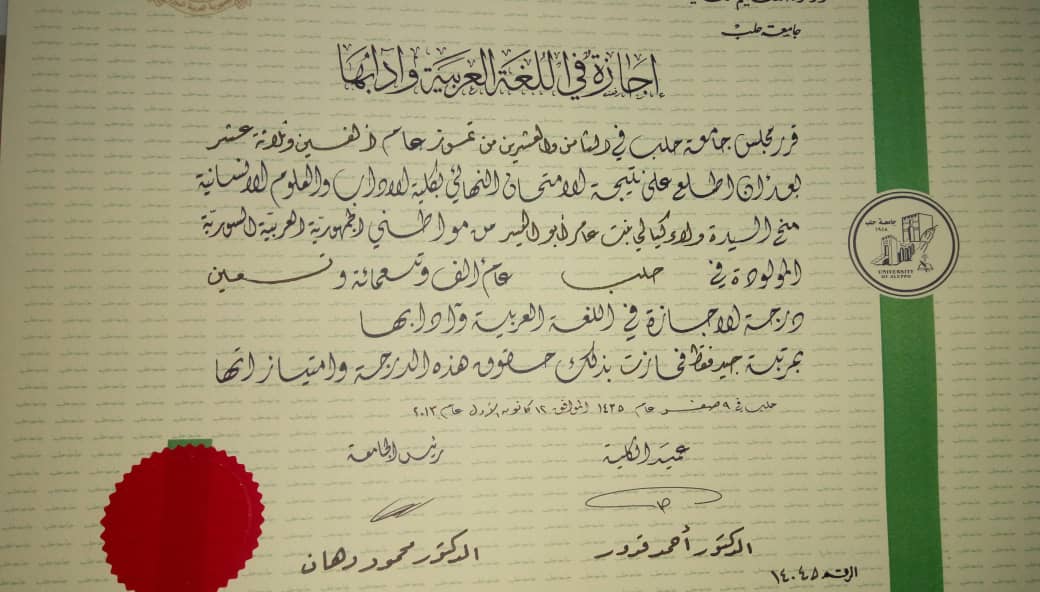 جامعة حلب
إجازة في اللغة العربية وآدابها
قرر مجلس جامعة حلب في الثامن والعشرين من تموز عام ألفين وثلاثة عشر
بعد أن اطلع على نتيجة الامتحان النهائي بكلية الآداب والعلوم الإنسانية
منح السيدة ولاء كيالي بنت عامر أبو اليسر من مواطني الجمهورية العربية السورية
المولودة في حلب عام ألف وتسعمائة وتسعين
درجة الإجازة في اللغة العربية وآدابها
بمرتبة جيد فقط فحازت بذلك حقوق هذه الدرجة وامتيازاتها
حلب في ٩ صفر عام ١٤٣٥ الموافق ١٢ كانون الأول عام ٢٠١٣
عميد الكلية
رئيس الجامعة
الدكتور أحمد قدور
الدكتور محمود دهان
الرقم
جامعة حلب
١٩٥٨
UNIVERSITY
OF ALEPPO